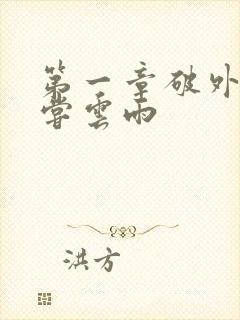 第一章破外
尝云雨
洪方